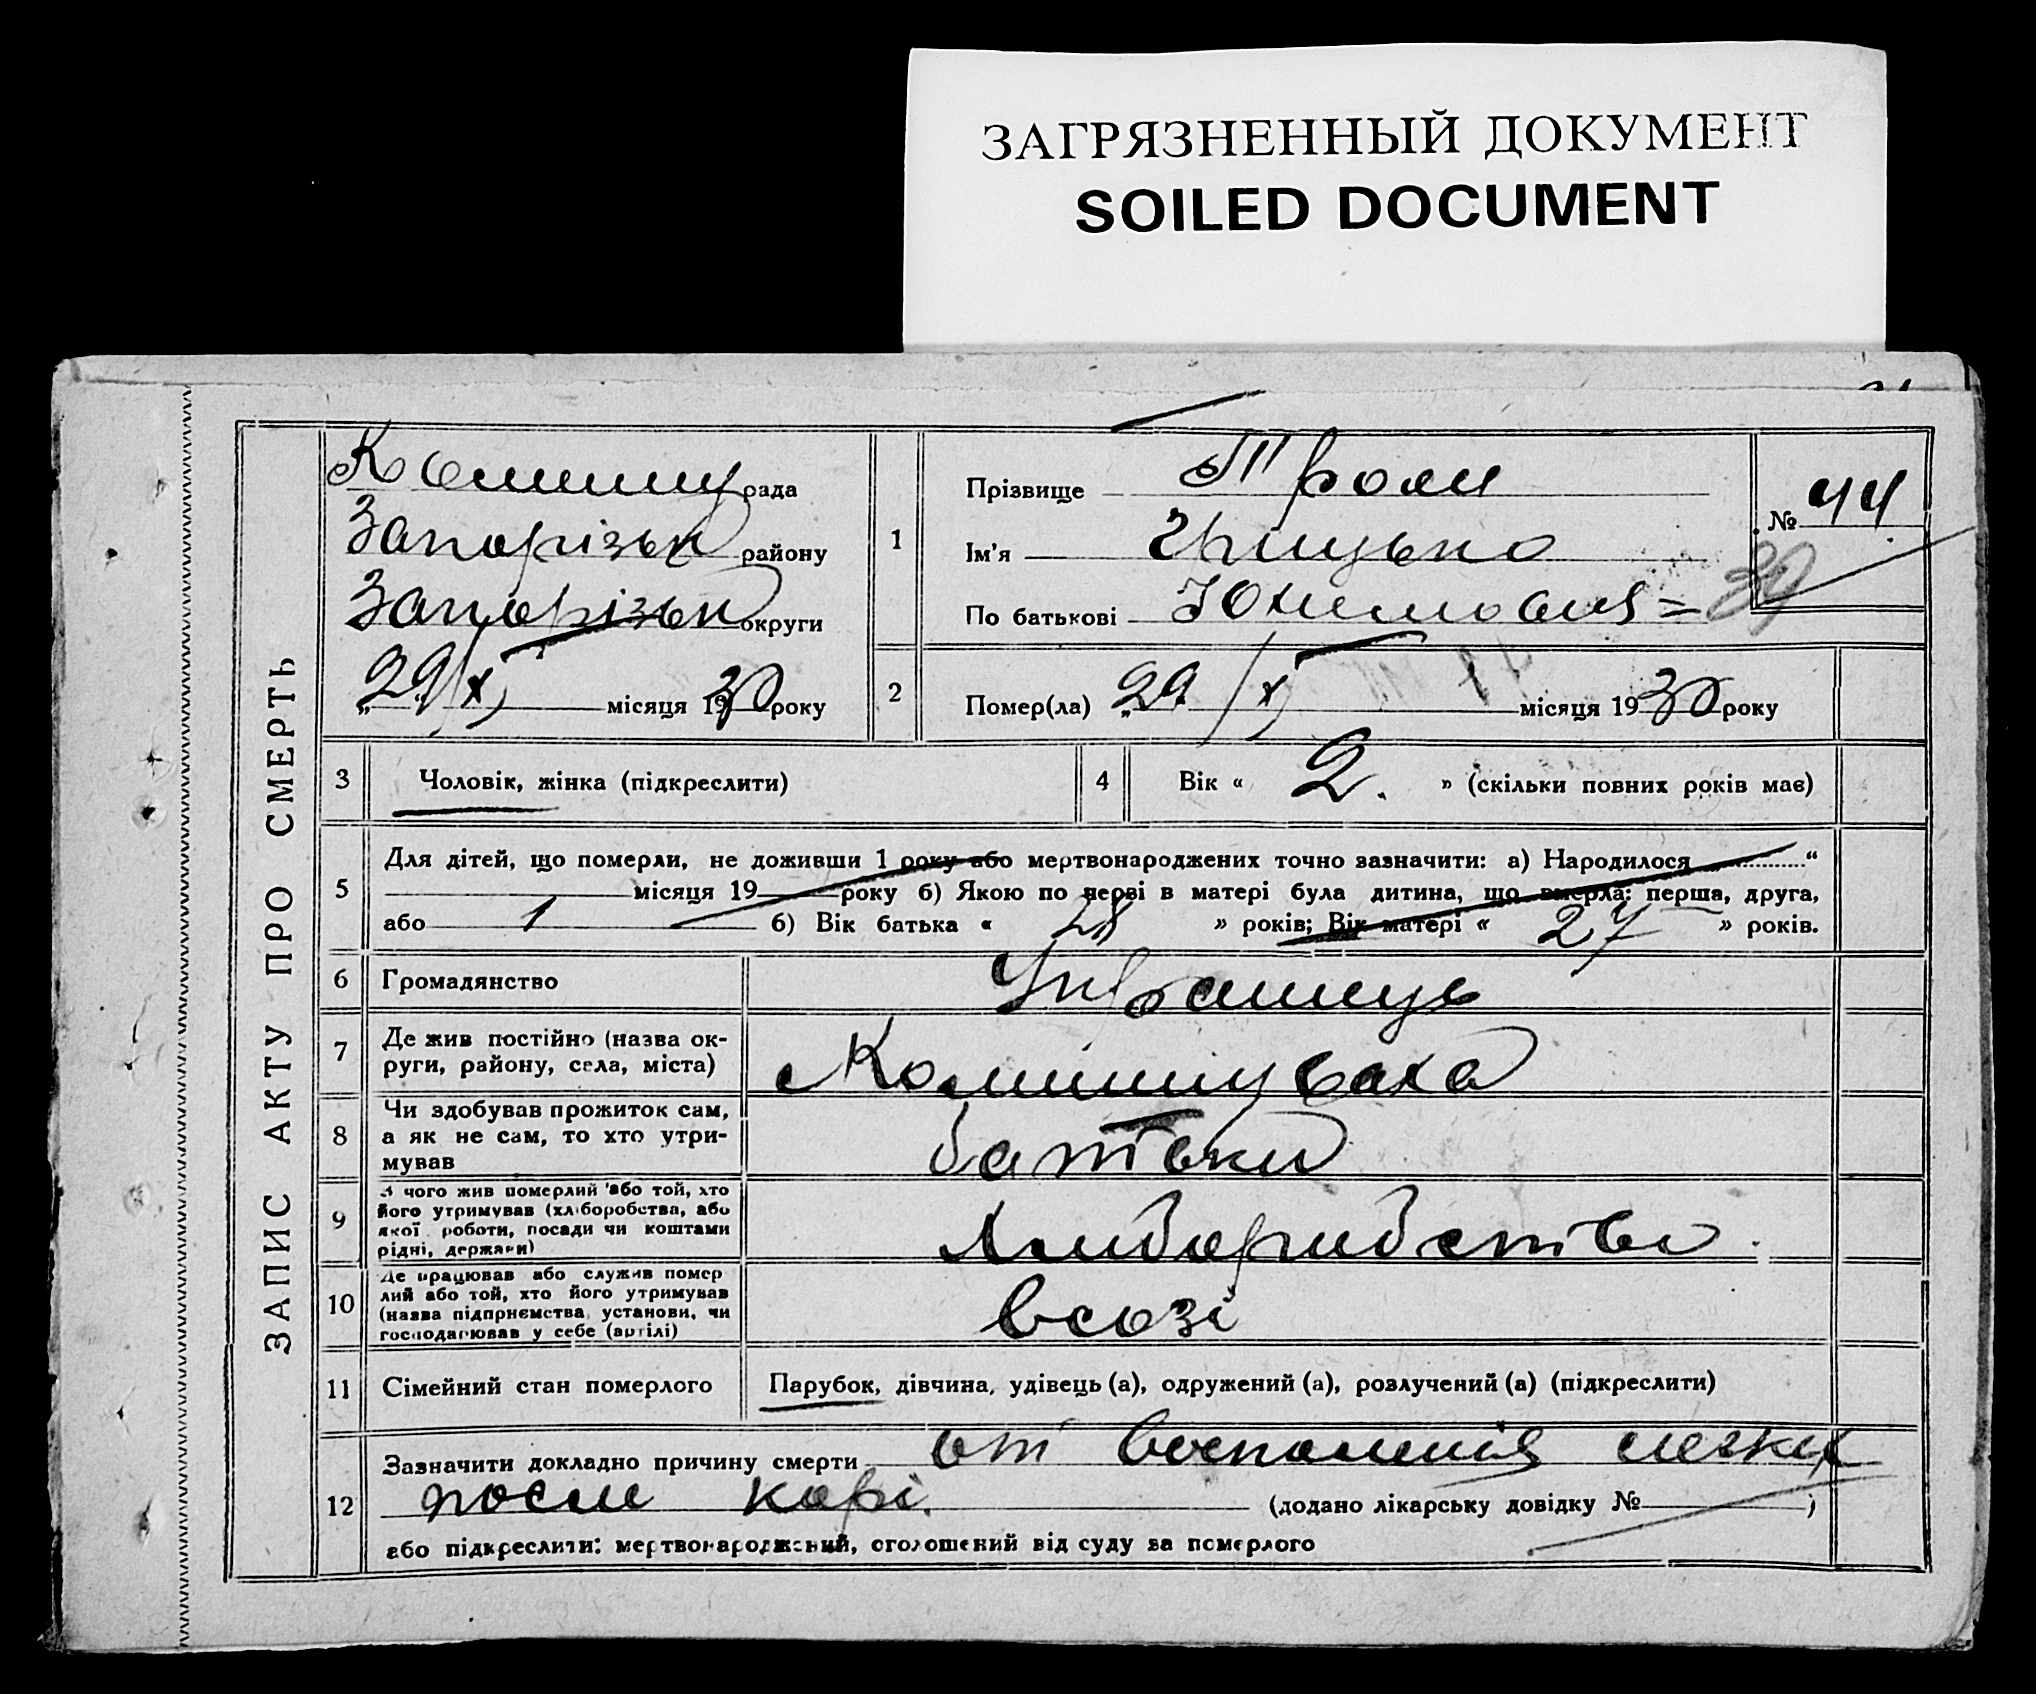 ЗАГРЯЗНЕННЫЙ ДОКУМЕНТ
SOILED DOCUMENT
ЗАПИС АКТУ ПРО СМЕРТЬ
рада
Запорізьк району
Запорізьк округи
„29/X місяця 1930 року
1
Прізвище
Ім'я Грицько
По батькові
№ 44
2
Помер(ла) „29/X місяця 1930 року
3 Чоловік, жінка (підкреслити)
4 Вік « 2. » (скільки повних років має)
5 Для дітей, що померли, не доживши 1 року або мертвонароджених точно зазначити: а) Народилося “
місяця 19 року б) Якою по черві в матері була дитина, що вмерла: перша, друга,
або 1 б) Вік батька « 28 » років; Вік матері « 27 » років.
6 Громадянство Украинець
7 Де жив постійно (назва ок-
руги, району, села, міста) Комишуваха
8 Чи здобував прожиток сам,
а як не сам, то хто утри-
мував батьки
9 З чого жив померлий або той, хто
його утримував (хліборобства, або
якої роботи, посади чи коштами
рідні, держави)
10 Де працював або служив помер
лий або той, хто його утримував
(назва підприємства, установи, чи
господарював у себе (артілі) в созі
11 Сімейний стан померлого Парубок, дівчина, удівець (а), одружений (а), розлучений (а) (підкреслити)
12 Зазначити докладно причину смерти от воспаленія легких
после корі. (додано лікарську довідку № )
або підкреслити: мертвонароджений, оголошений від суду за померлого